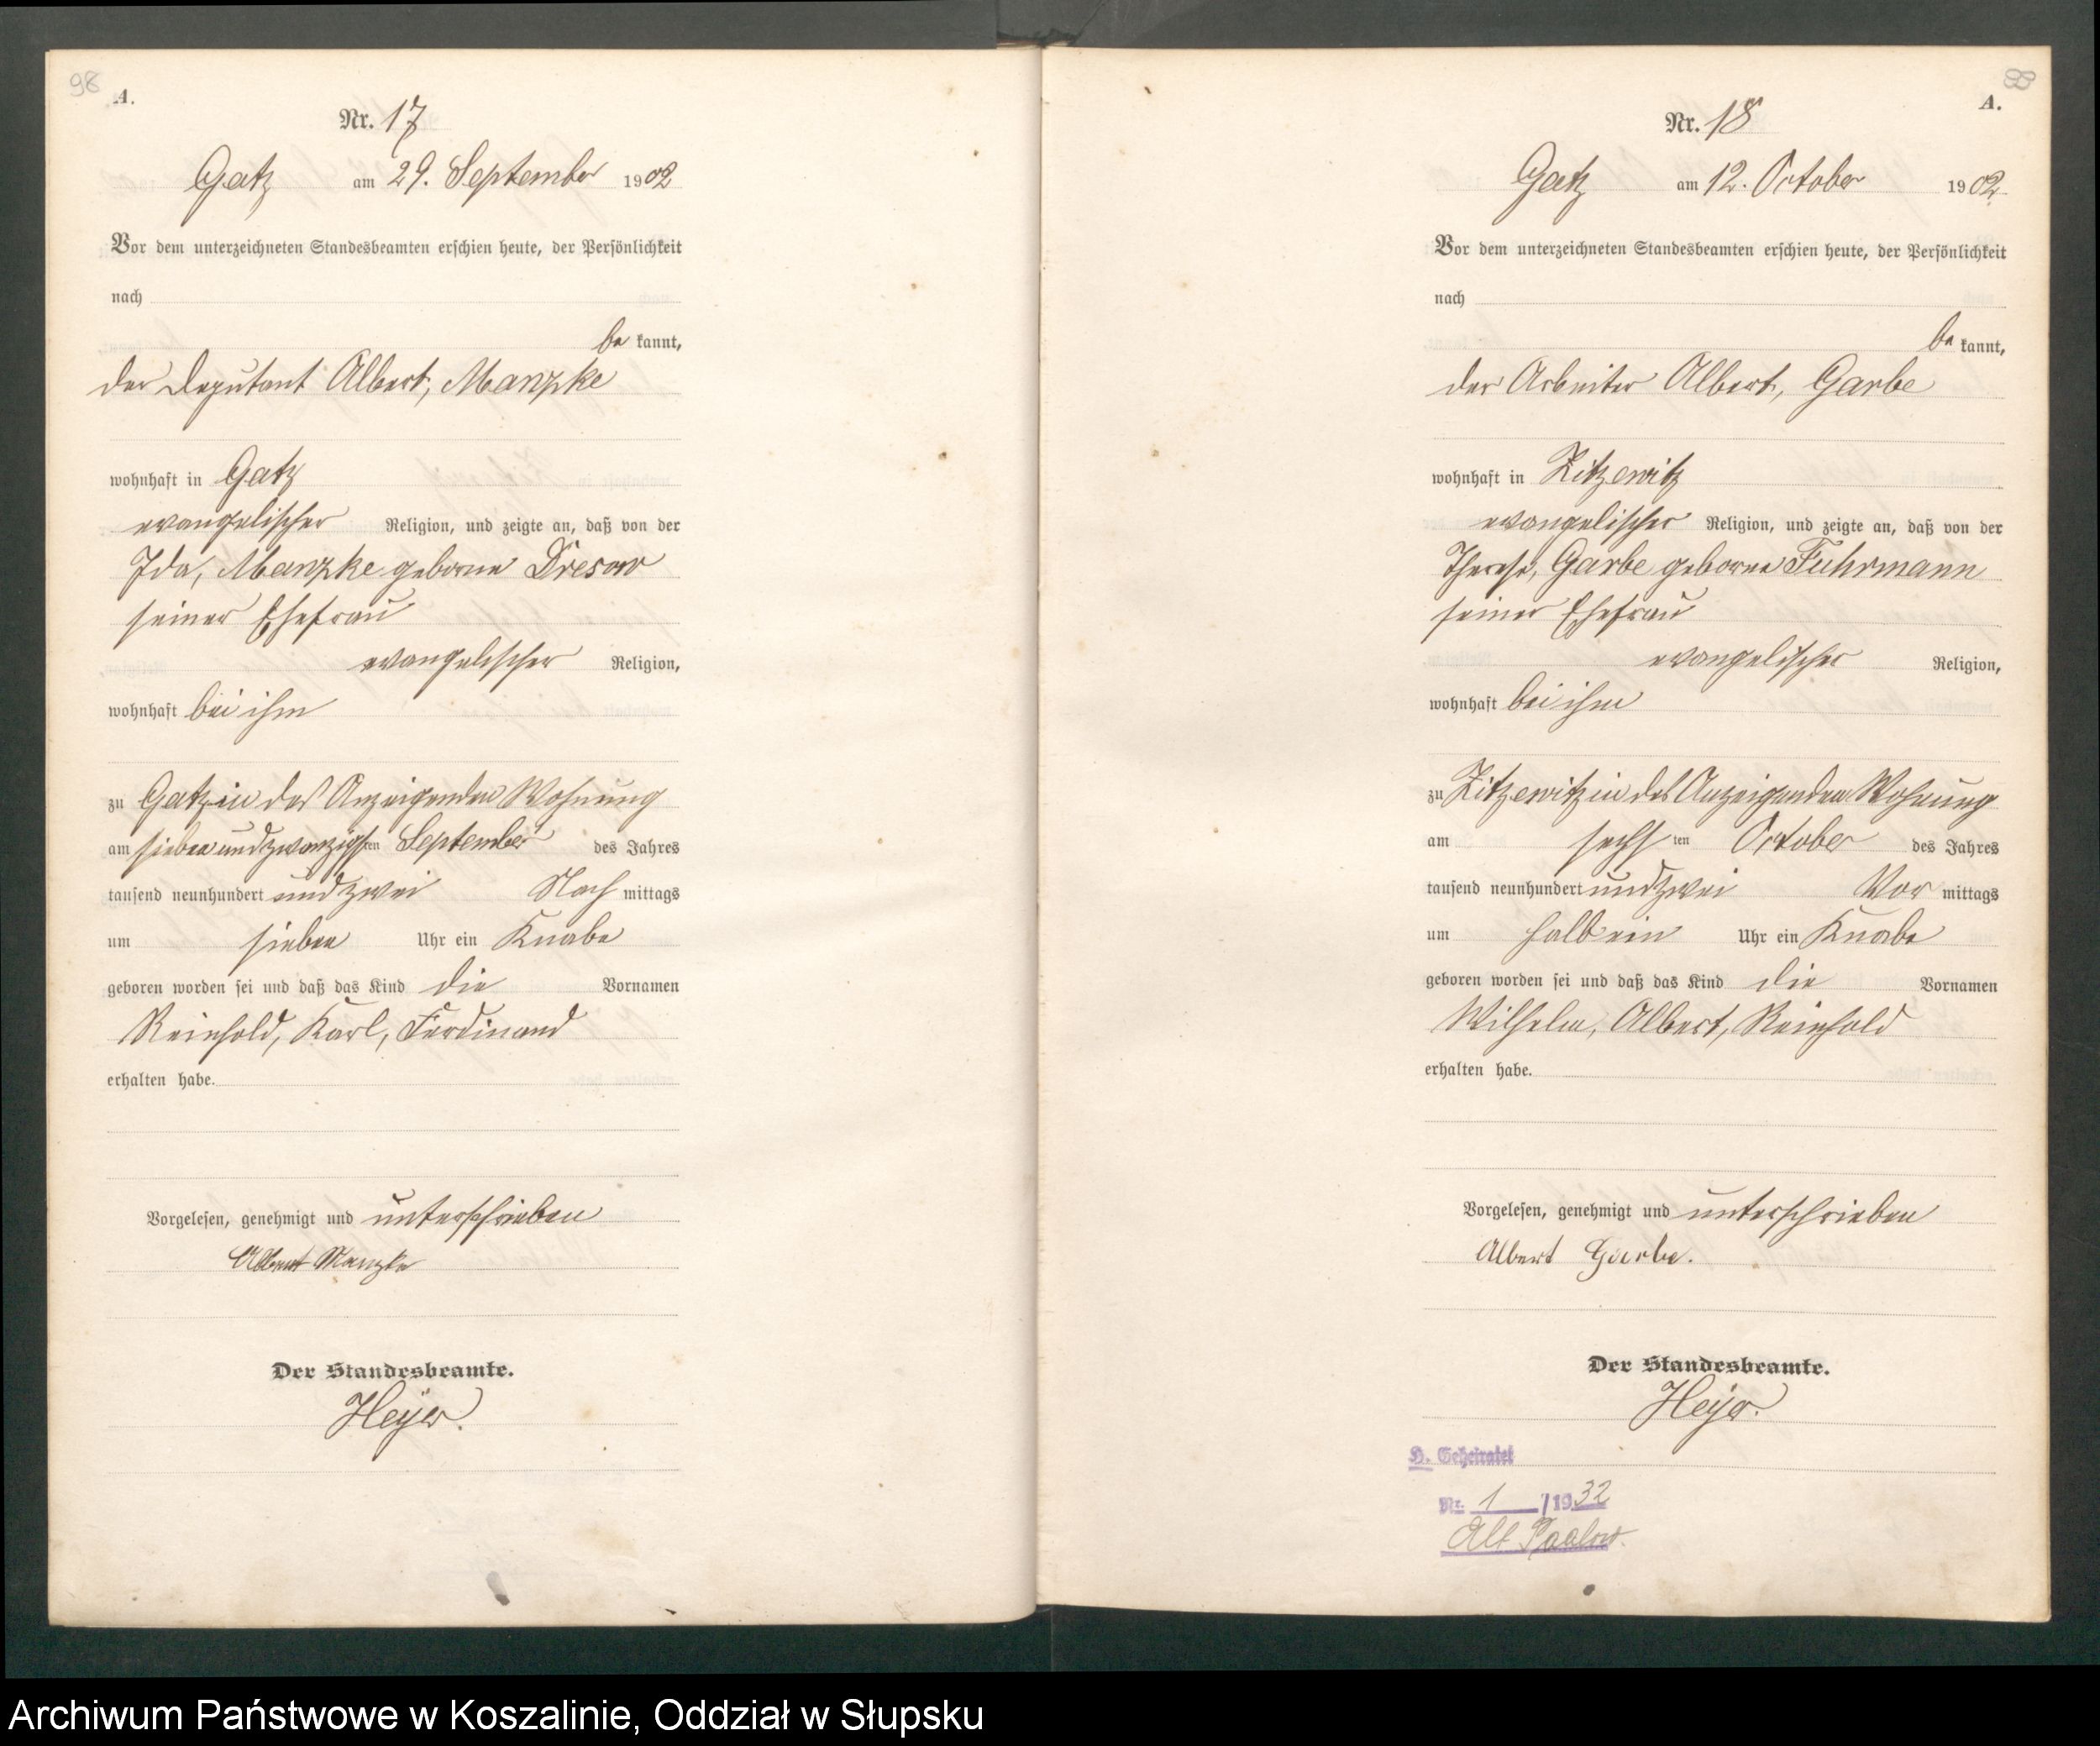 98
A.
Nr. 17
Gatz am 29. September 1902
Vor dem unterzeichneten Standesbeamten erschien heute, der Persönlichkeit
nach
be kannt,
der Deputant Albert, Manzke
wohnhaft in Gatz
evangelischer Religion, und zeigte an, daß von der
Ida, Manzke geborne Dresow
seiner Ehefrau
evangelischer Religion,
wohnhaft bei ihm
zu Gatz in des Anzeigenden Wohnung
am siebenundzwanzigsten September des Jahres
tausend neunhundert undzwei Nach mittags
um sieben Uhr ein Knabe
geboren worden sei und daß das Kind die Vornamen
Reinhold, Karl, Ferdinand
erhalten habe.
Vorgelesen, genehmigt und unterschrieben
Albert Manzke
Der Standesbeamte.
Heyer.
A.
Nr. 18
Gatz am 12. October 1902
Vor dem unterzeichneten Standesbeamten erschien heute, der Persönlichkeit
nach
be kannt,
der Arbeiter Albert, Garbe
wohnhaft in Zitzewitz
evangelischer Religion, und zeigte an, daß von der
Therese, Garbe geborne Fuhrmann
seiner Ehefrau
evangelischer Religion,
wohnhaft bei ihm
zu Zitzewitz in des Anzeigenden Wohnung
am sechsten October des Jahres
tausend neunhundert undzwei Vor mittags
um halb ein Uhr ein Knabe
geboren worden sei und daß das Kind die Vornamen
Wilhelm, Albert, Reinhold
erhalten habe.
Vorgelesen, genehmigt und unterschrieben
Albert Garbe.
Der Standesbeamte.
Heyer.
H. Geheiratet
Nr. 1 /1932
Alt Paalow.
Archiwum Państwowe w Koszalinie, Oddział w Słupsku